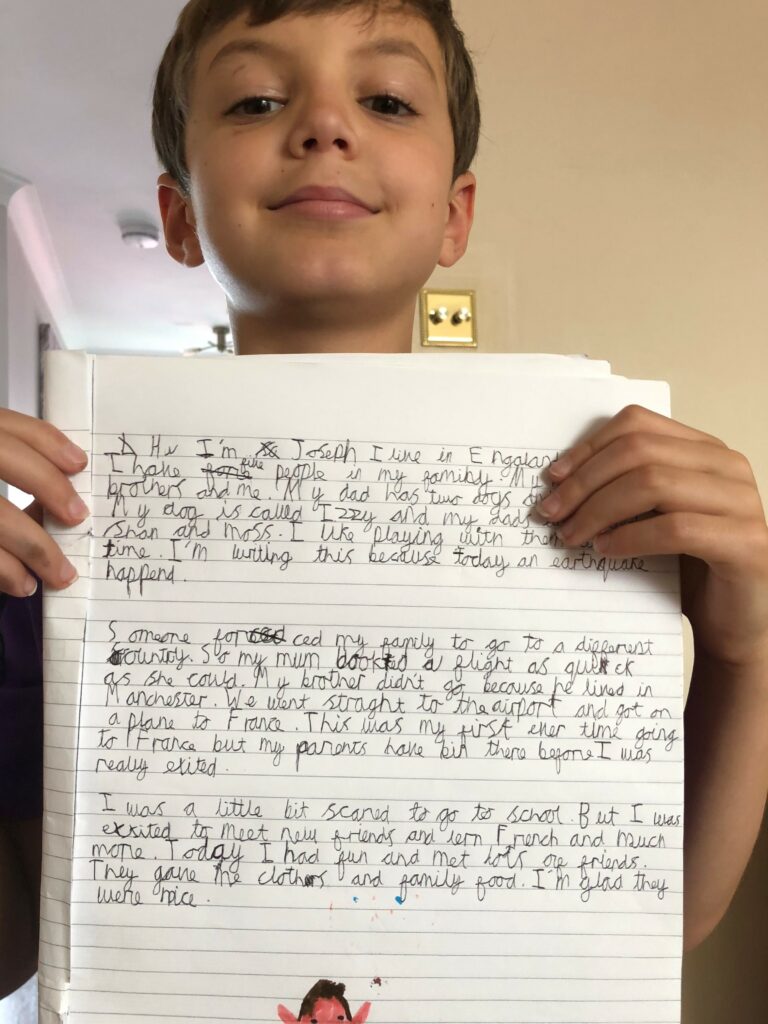 Hi I'm Joseph I live in Engaland
I have five people in my family. My
brothers and me. My dad has two dogs
My dog is called Izzy and my dads
Shan and moss. I like playing with them
time. I'm writing this because today an earthquake
happend.
Someone forced my family to go to a different
country. So my mum booked a flight as quick
as she could. My brother didn't go because he lived in
Manchester. We went straght to the airport and got on
a plane to France. This was my first ever time going
to France but my parents have bin there before I was
really exited.
I was a little bit scared to go to school. But I was
exxited to meet new friends and lern French and much
more. Today I had fun and met lots of friends.
They gave me clothes and family food. I'm glad they
were nice.